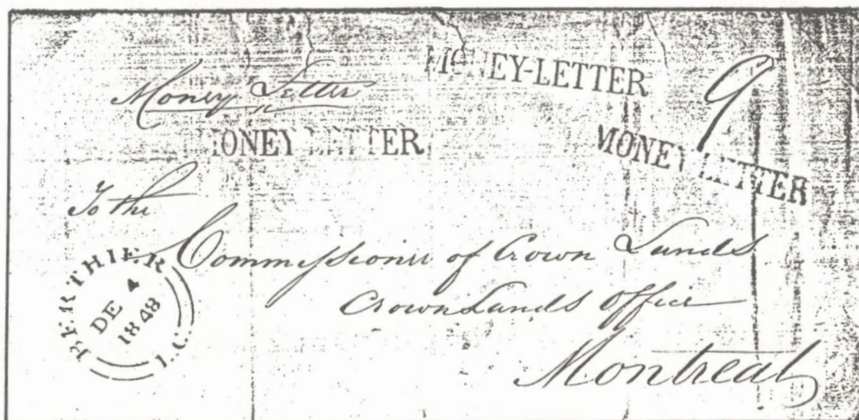 MONEY-LETTER
9
Money Letter
MONEY LETTER
MONEY LETTER
To the
Commissioner of Crown Lands
Crown Lands Office
Montreal
BERTHIER
DE 4
1848
L.C.